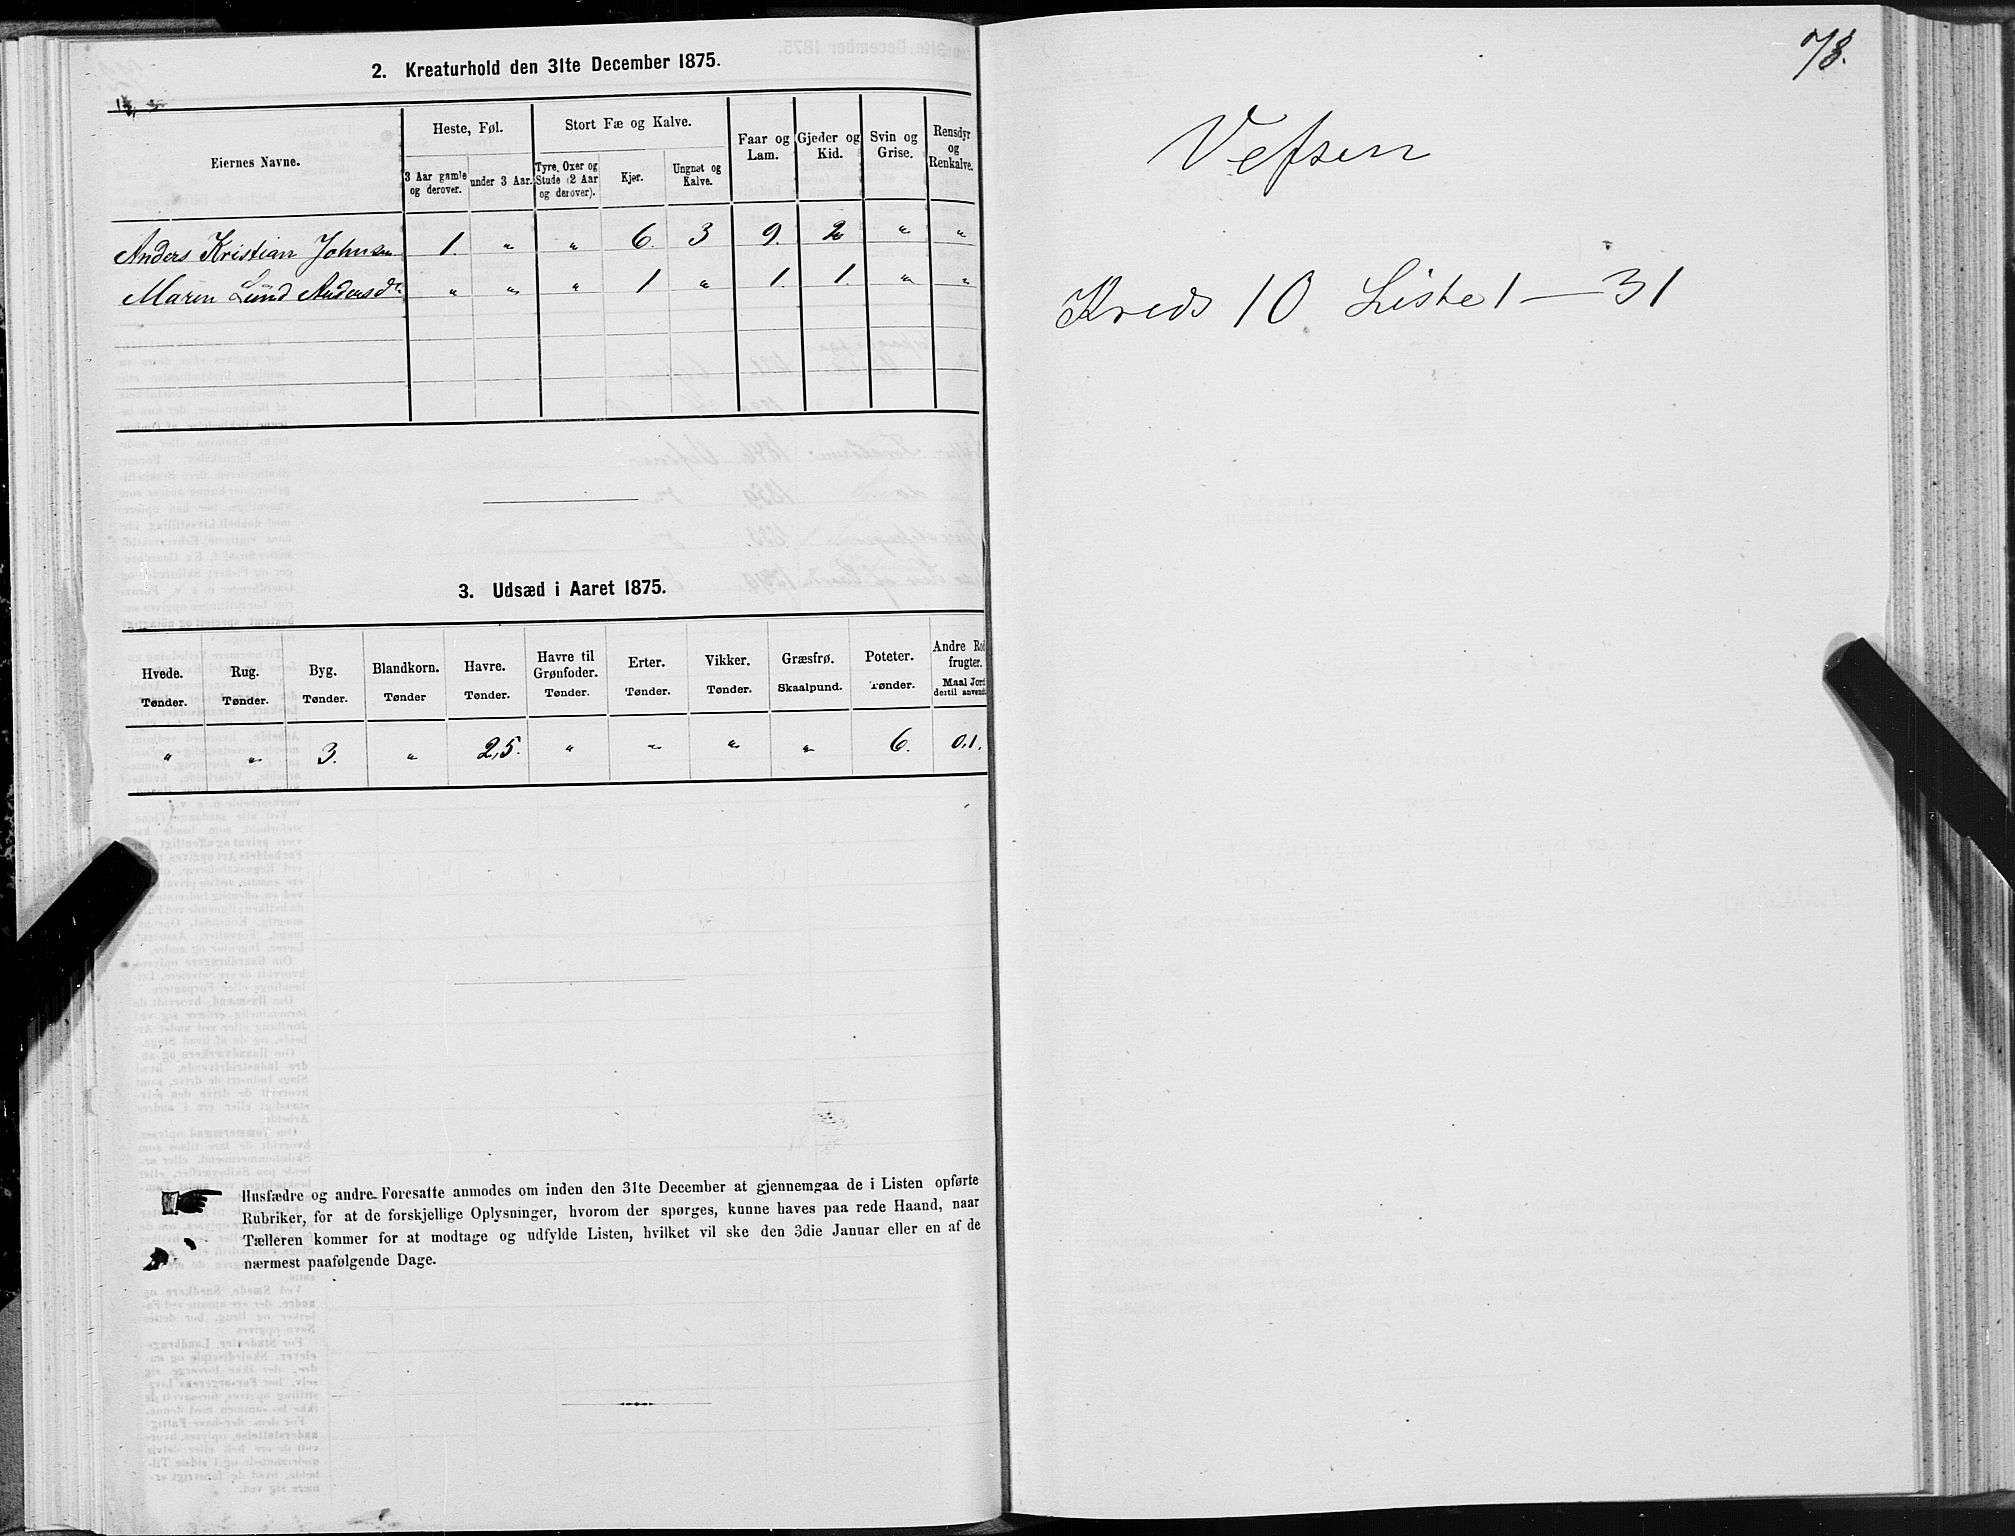 2. Kreaturhold den 31te December 1875.
Eiernes Navne.
Heste, Føl.
Stort Fæ og Kalve.
Faar og Lam.
Gjeder og Kid.
Svin og Grise.
Rensdyr og Renkalve.
3 Aar gamle og derover.
under 3 Aar.
Tyre, Oxer og Stude (2 Aar og derover).
Kjør.
Ungnøt og Kalve.
Anders Kristian Johnsen 1. " " 6. 3 9. 2 " "
Maren Lund Andersdr " " " 1 " 1. 1. " "
3. Udsæd i Aaret 1875.
Hvede. Rug. Byg. Blandkorn. Havre. Havre til Grønfoder. Erter. Vikker. Græsfrø. Poteter. Andre Rodfrugter.
Tønder. Tønder. Tønder. Tønder Tønder. Tønder. Tønder. Tønder. Skaalpund. Tønder. Maal Jord dertil anvendt.
" " 3. " 2,5. " " " " 6. 0.1.
Husfædre og andre Foresatte anmodes om inden den 31te December at gjennemgaa de i Listen opførte
Rubriker, for at de forskjellige Oplysninger, hvorom der spørges, kunne haves paa rede Haand, naar
Tælleren kommer for at modtage og udfylde Listen, hvilket vil ske den 3die Januar eller en af de
nærmest paafølgende Dage.
78.
Vefsen
Kreds 10 Liste 1 — 31